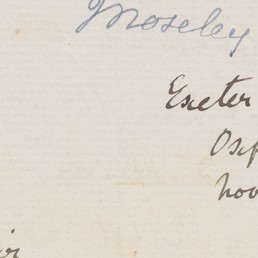 Moseley
Exeter
Oxf
Nov
ir